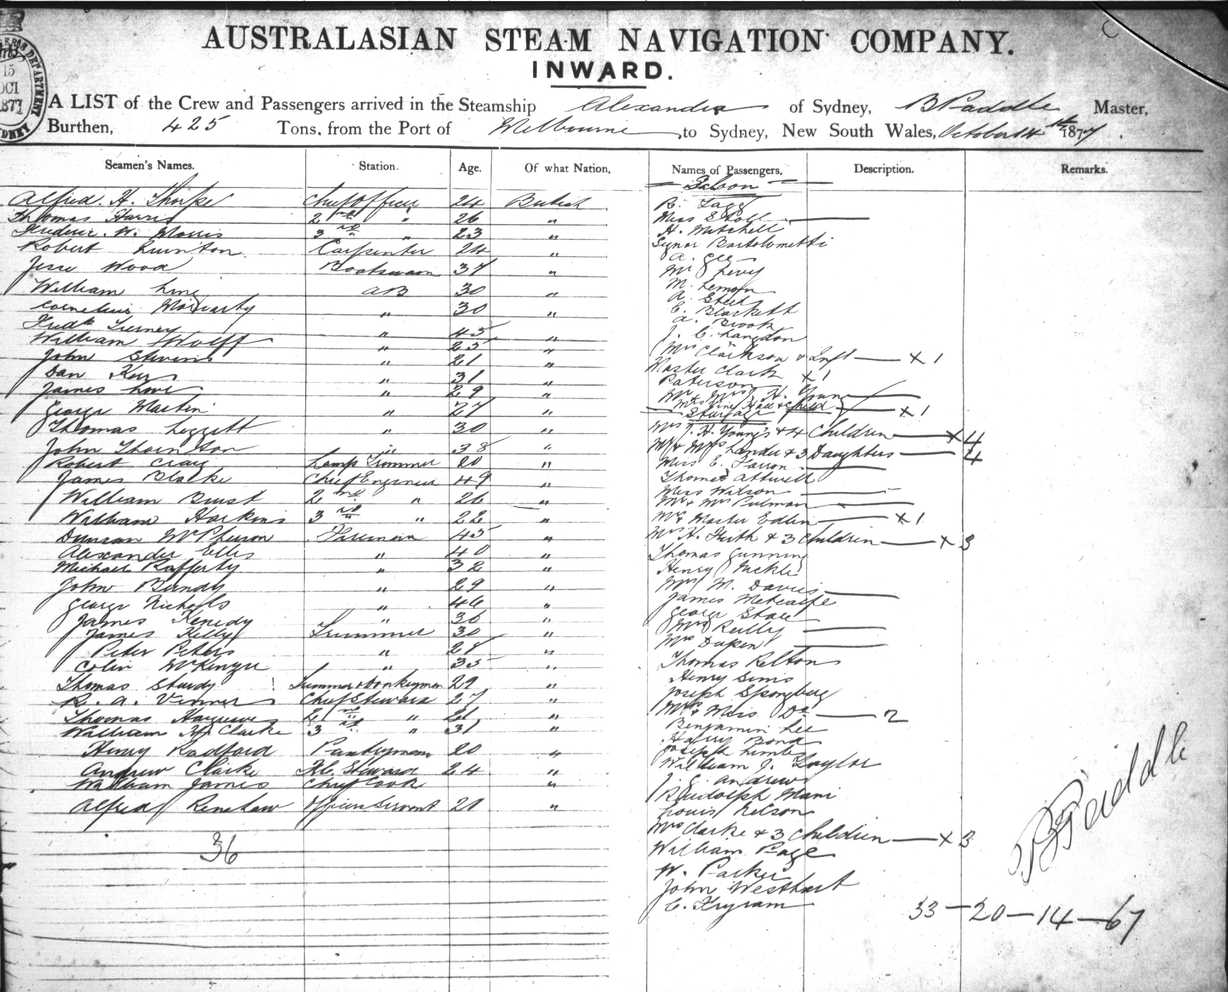 AUSTRALASIAN STEAM NAVIGATION COMPANY.
INWARD.
A LIST of the Crew and Passengers arrived in the Steamship Alexandra of Sydney, B Paddle Master,
Burthen, 425 Tons, from the Port of Melbourne, to Sydney, New South Wales, October 14th 1877.
Seamen's Names. Station. Age. Of what Nation,
Alfred H. Thorpe Chief Officer 24 British
Thomas Harris 2nd " 26 "
Frederic W. Morris 3rd " 23 "
Robert Quinton Carpenter 24 "
Jesse Wood Boatswain 37 "
William King AB 30 "
Cornelius Moriarty " 30 "
Fredk Tierney " 45 "
William Wolff " 25 "
John Stevens " 21 "
Dan Kerr " 31 "
James Love " 29 "
George Martin " 27 "
Thomas Leggett " 30 "
John " 38 "
Robert Craig Lamp Trimmer 20 "
James Blacke Chief Engineer 49 "
William Burst 2nd " 26 "
William Harkins 3rd " 22 "
Duncan McPherson Fireman 45 "
Alexander Ellis " 40 "
Michael Rafferty " 32 "
John Bundy " 29 "
George Nicholls " 46 "
James Kenedy " 36 "
James Kelly Trimmer 30 "
Peter Peters " 28 "
Colin McKenzie " 35 "
Thomas Sturdy Trimmer & Donkeyman 29 "
R. A. Vinner Chief Steward 27 "
Thomas Hargreaves 2nd " 21 "
William Clarke 3rd " 31 "
Henry Radford Pantryman 20 "
Andrew Clarke F.C. Steward 24 "
William James Chief Cook "
Alfred Renshaw Officers Servant 20 "
36
Names of Passengers, Description. Remarks.
Saloon
R.
Miss
H. Mitchell
Signor Bartolometti
A. Gee
Mr Levy
M. Lemon
A. Steel
E. Blackett
A. Brook
J. C. Langdon
Mrs Clarkson & Inft x 1
Master Clark x 1
Paterson
Mr & Mrs H. Young
& Child x 1
Steerage
Mrs J. H. Young's & 4 Children x 4
Mr & Mrs Lander & 3 Daughters 4
Miss E. Farron
Thomas Attwell
Miss Wilson
Mr & Mrs Pulman
Mr & Master Edlin x 1
Mrs H. Firth & 3 Children x 3
Thomas Gunning
Henry Nickle
Mrs M. Davis
James Metcalfe
George Stace
Mrs Reilly
Mrs Duken
Thomas Relton
Henry Sims
Joseph Spongberg
Mrs & Miss Do 2
Benjamin Lee
Harry Bond
Joseph Limby
William J. Taylor
J. E. Andrews
Rudolph Mani
Louis Nelson
Mrs Clarke & 3 Children x 3
William Page
W. Parker
John Westhart
C. Frysam
B Paddle
33 - 20 - 14 - 67